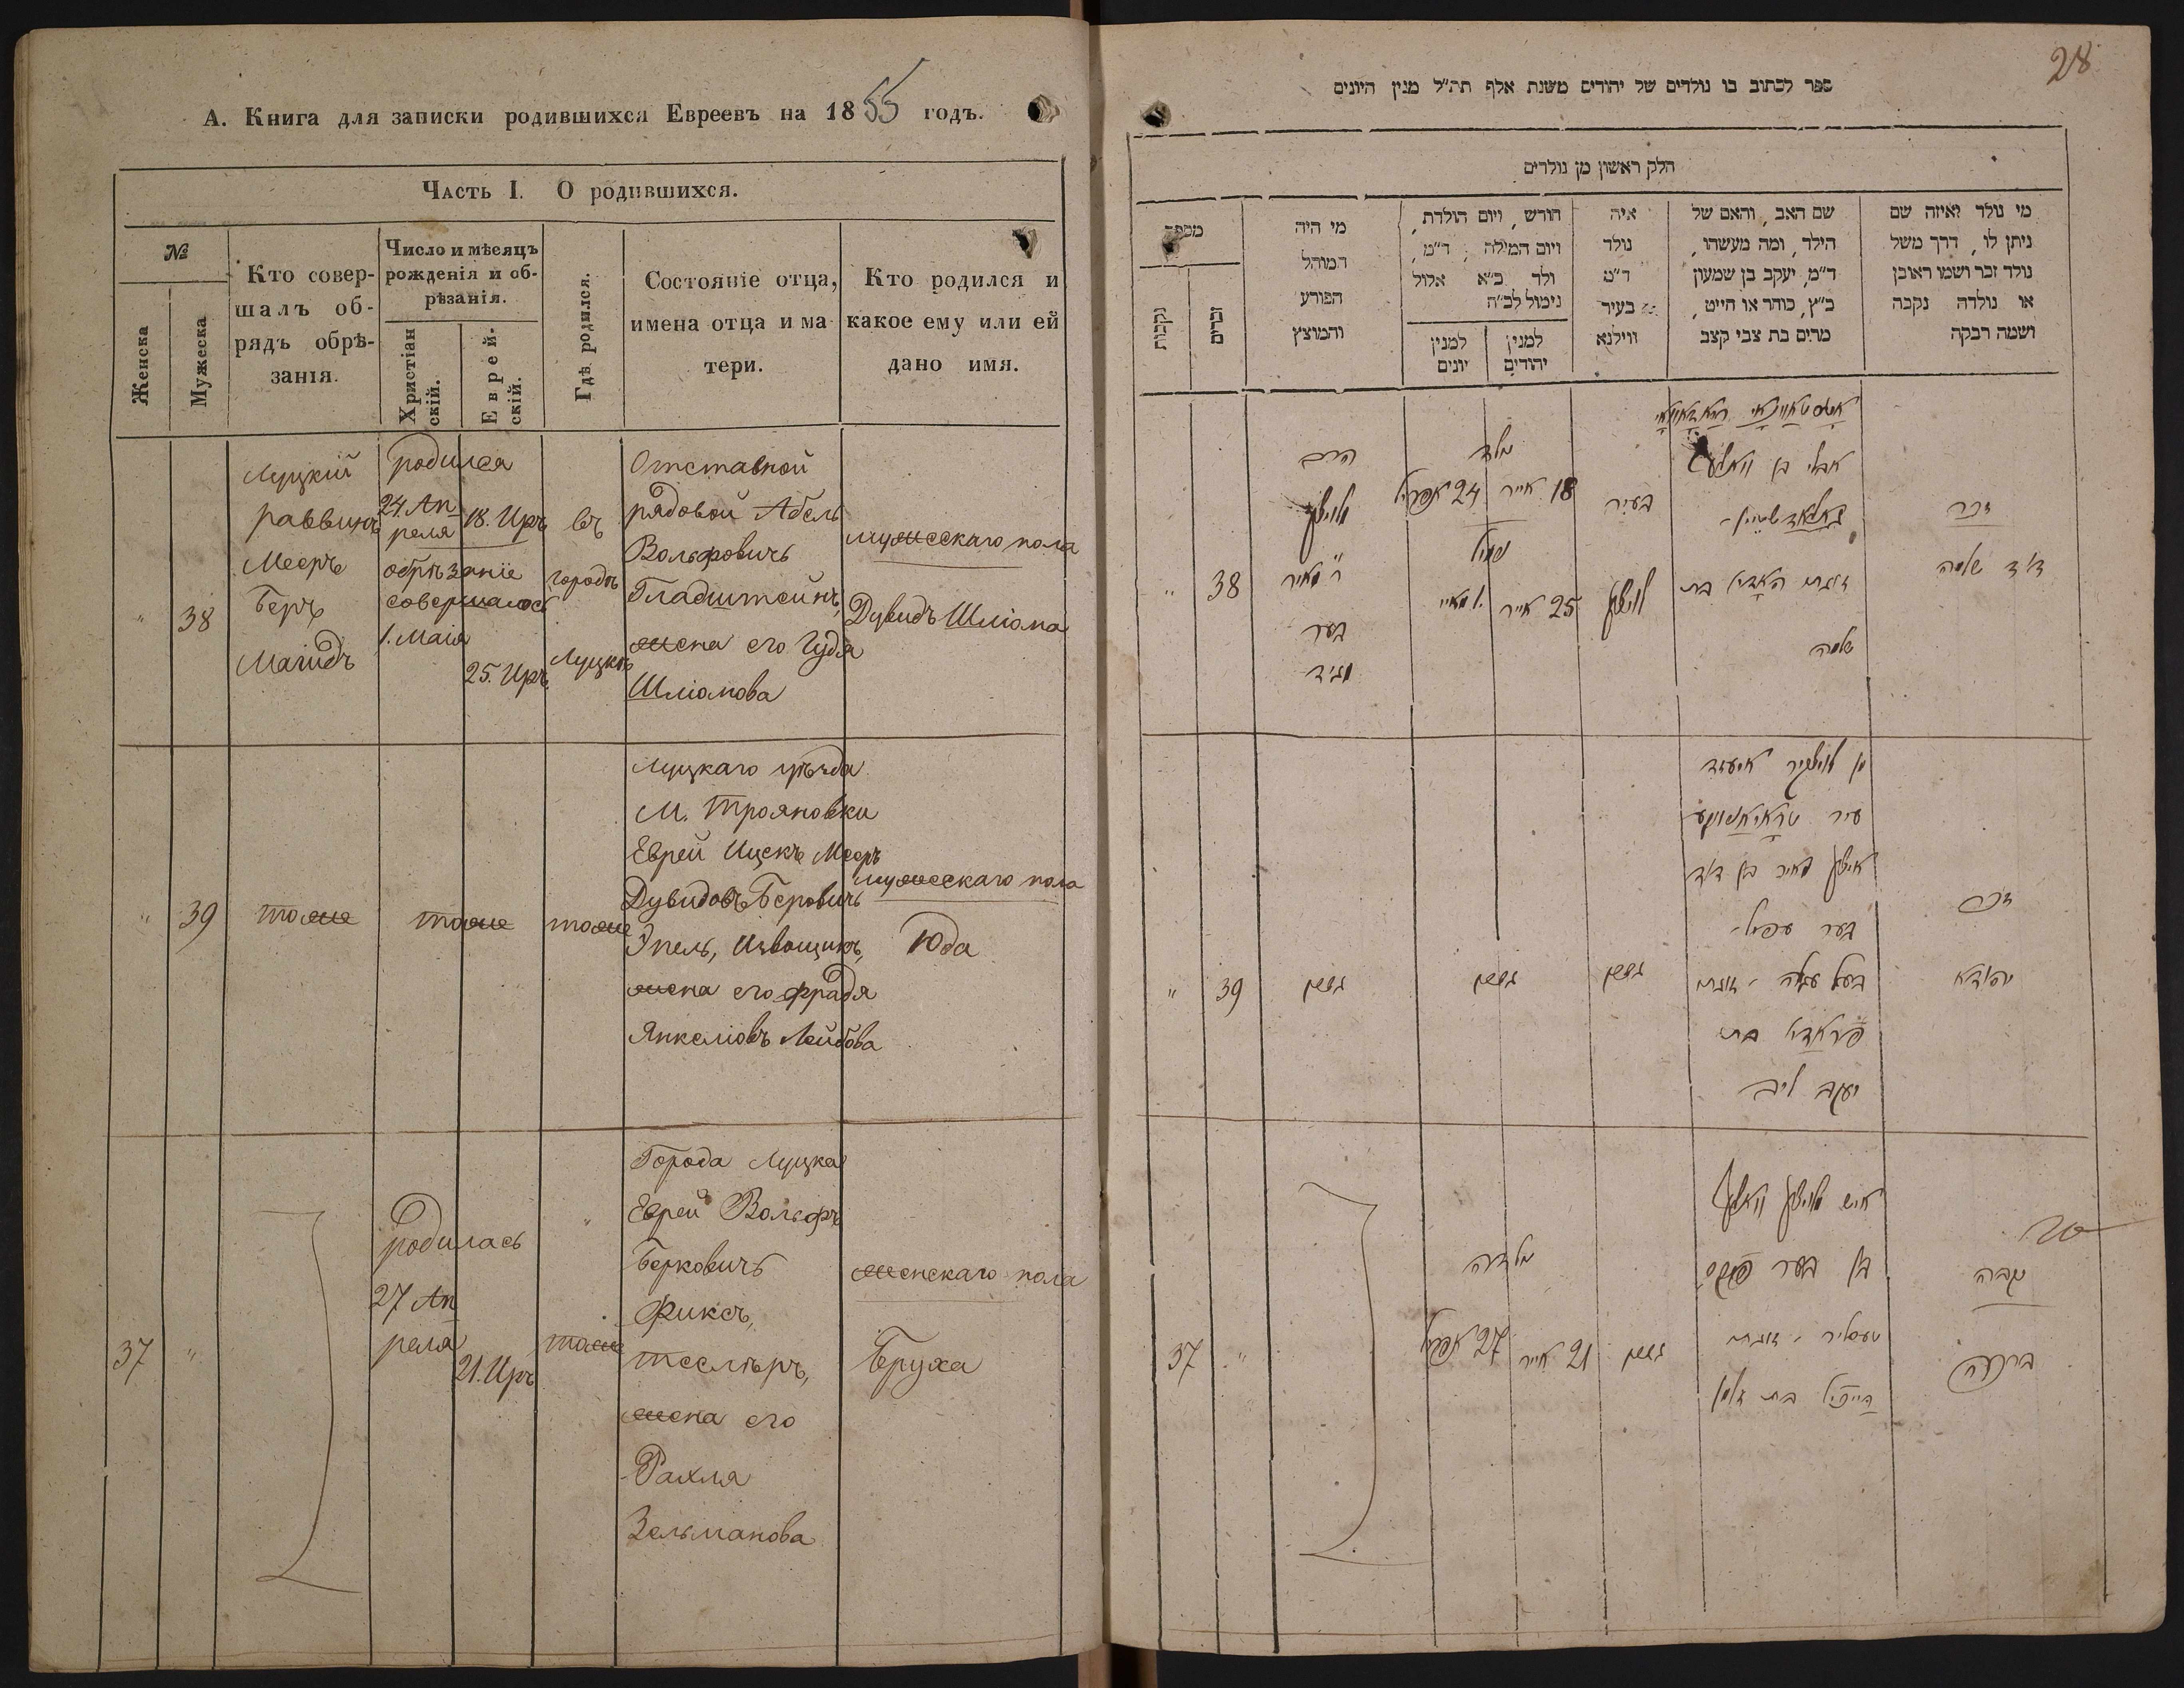 А. Книга для записки родившихся Евреевъ на 1855 годъ.
Часть I. О родившихся.
№
Женска
Мужеска
Кто совер-
шалъ об-
рядъ обрѣ-
занія.
Число и мѣсяцъ
рожденія и об-
рѣзанія.
Христіан
скій.
Еврей-
скій.
Гдѣ родился.
Состояніе отца,
имена отца и ма
тери.
Кто родился и
какое ему или ей
дано имя.
"
38
Луцкій
раввинъ
Мееръ
Беръ
Магидъ
родился
24 Ап
реля
18. Иръ
обрѣзаніе
совершалось
1. Маія
25. Иръ
въ
городѣ
Луцкѣ
Отставной
рядовой Абель
Вольфовичъ
Гладштейнъ,
жена его Гудя
Шліомова
мужескаго пола
Дувидъ Шліома
"
39
тоже
тоже
тоже
Луцкаго уѣзда
М. Трояновки
Еврей Ицекъ Мееръ
Дувидовъ Беровичъ
Эпель, Извощикъ,
жена его Фрадя
Янкеліовъ Лейбова
мужескаго пола
Юда
37
"
родилась
27 Ап
реля
21. Иръ
"
тоже
Города Луцка
Еврей Вольфъ
Берковичъ
Фиксъ,
теслѣръ,
жена его
Рахля
Зельманова
женскаго пола
Бруха
28
ספר לכתוב בו נולדים של יהודים משנת אלף תת״ל מנין היונים
חלק ראשון מן נולדים
מי נולד ואיזה שם
ניתן לו, דרך משל
נולד זכר ושמו ראובן
או נולדה נקבה
ושמה רבקה
שם האב, והאם של
הילד, ומה מעשהו,
ד״מ, יעקב בן שמעון
כ״ץ, סוחר או חייט,
מרים בת צבי קצב
איה
נולד
ד״מ
בעיר
ווילנא
חודש, ויום הולדת,
ויום המילה, ד״מ,
ולד כ״א אלול
נימול לכ״ח
למנין
יהודים
למנין
יונים
מי היה
המוהל
הפורע
והמוצץ
מספר
זכרים
נקבות
זכר
דוד שלמה
אבלי בן וואלף
זוגתו האדיא בת
שלמה
בעיר
לויצק
נולד
18 אייר
24 אפריל
נימול
25 אייר
1 מאיי
הרב
לויצק
ר׳ מאיר
בער
מגיד
38
"
זכר
יהודא
עיר טראיאנווקע
איצק מאיר בן דוד
בער עפיל
בעל עגלה - זוגתו
פראדיא בת
יעקב ליב
39
"
נקבה
ברכה
איש לויצק וואלף
בן בער פיקס
בת זלמן
נולדה
21 אייר
27 אפריל
37
"